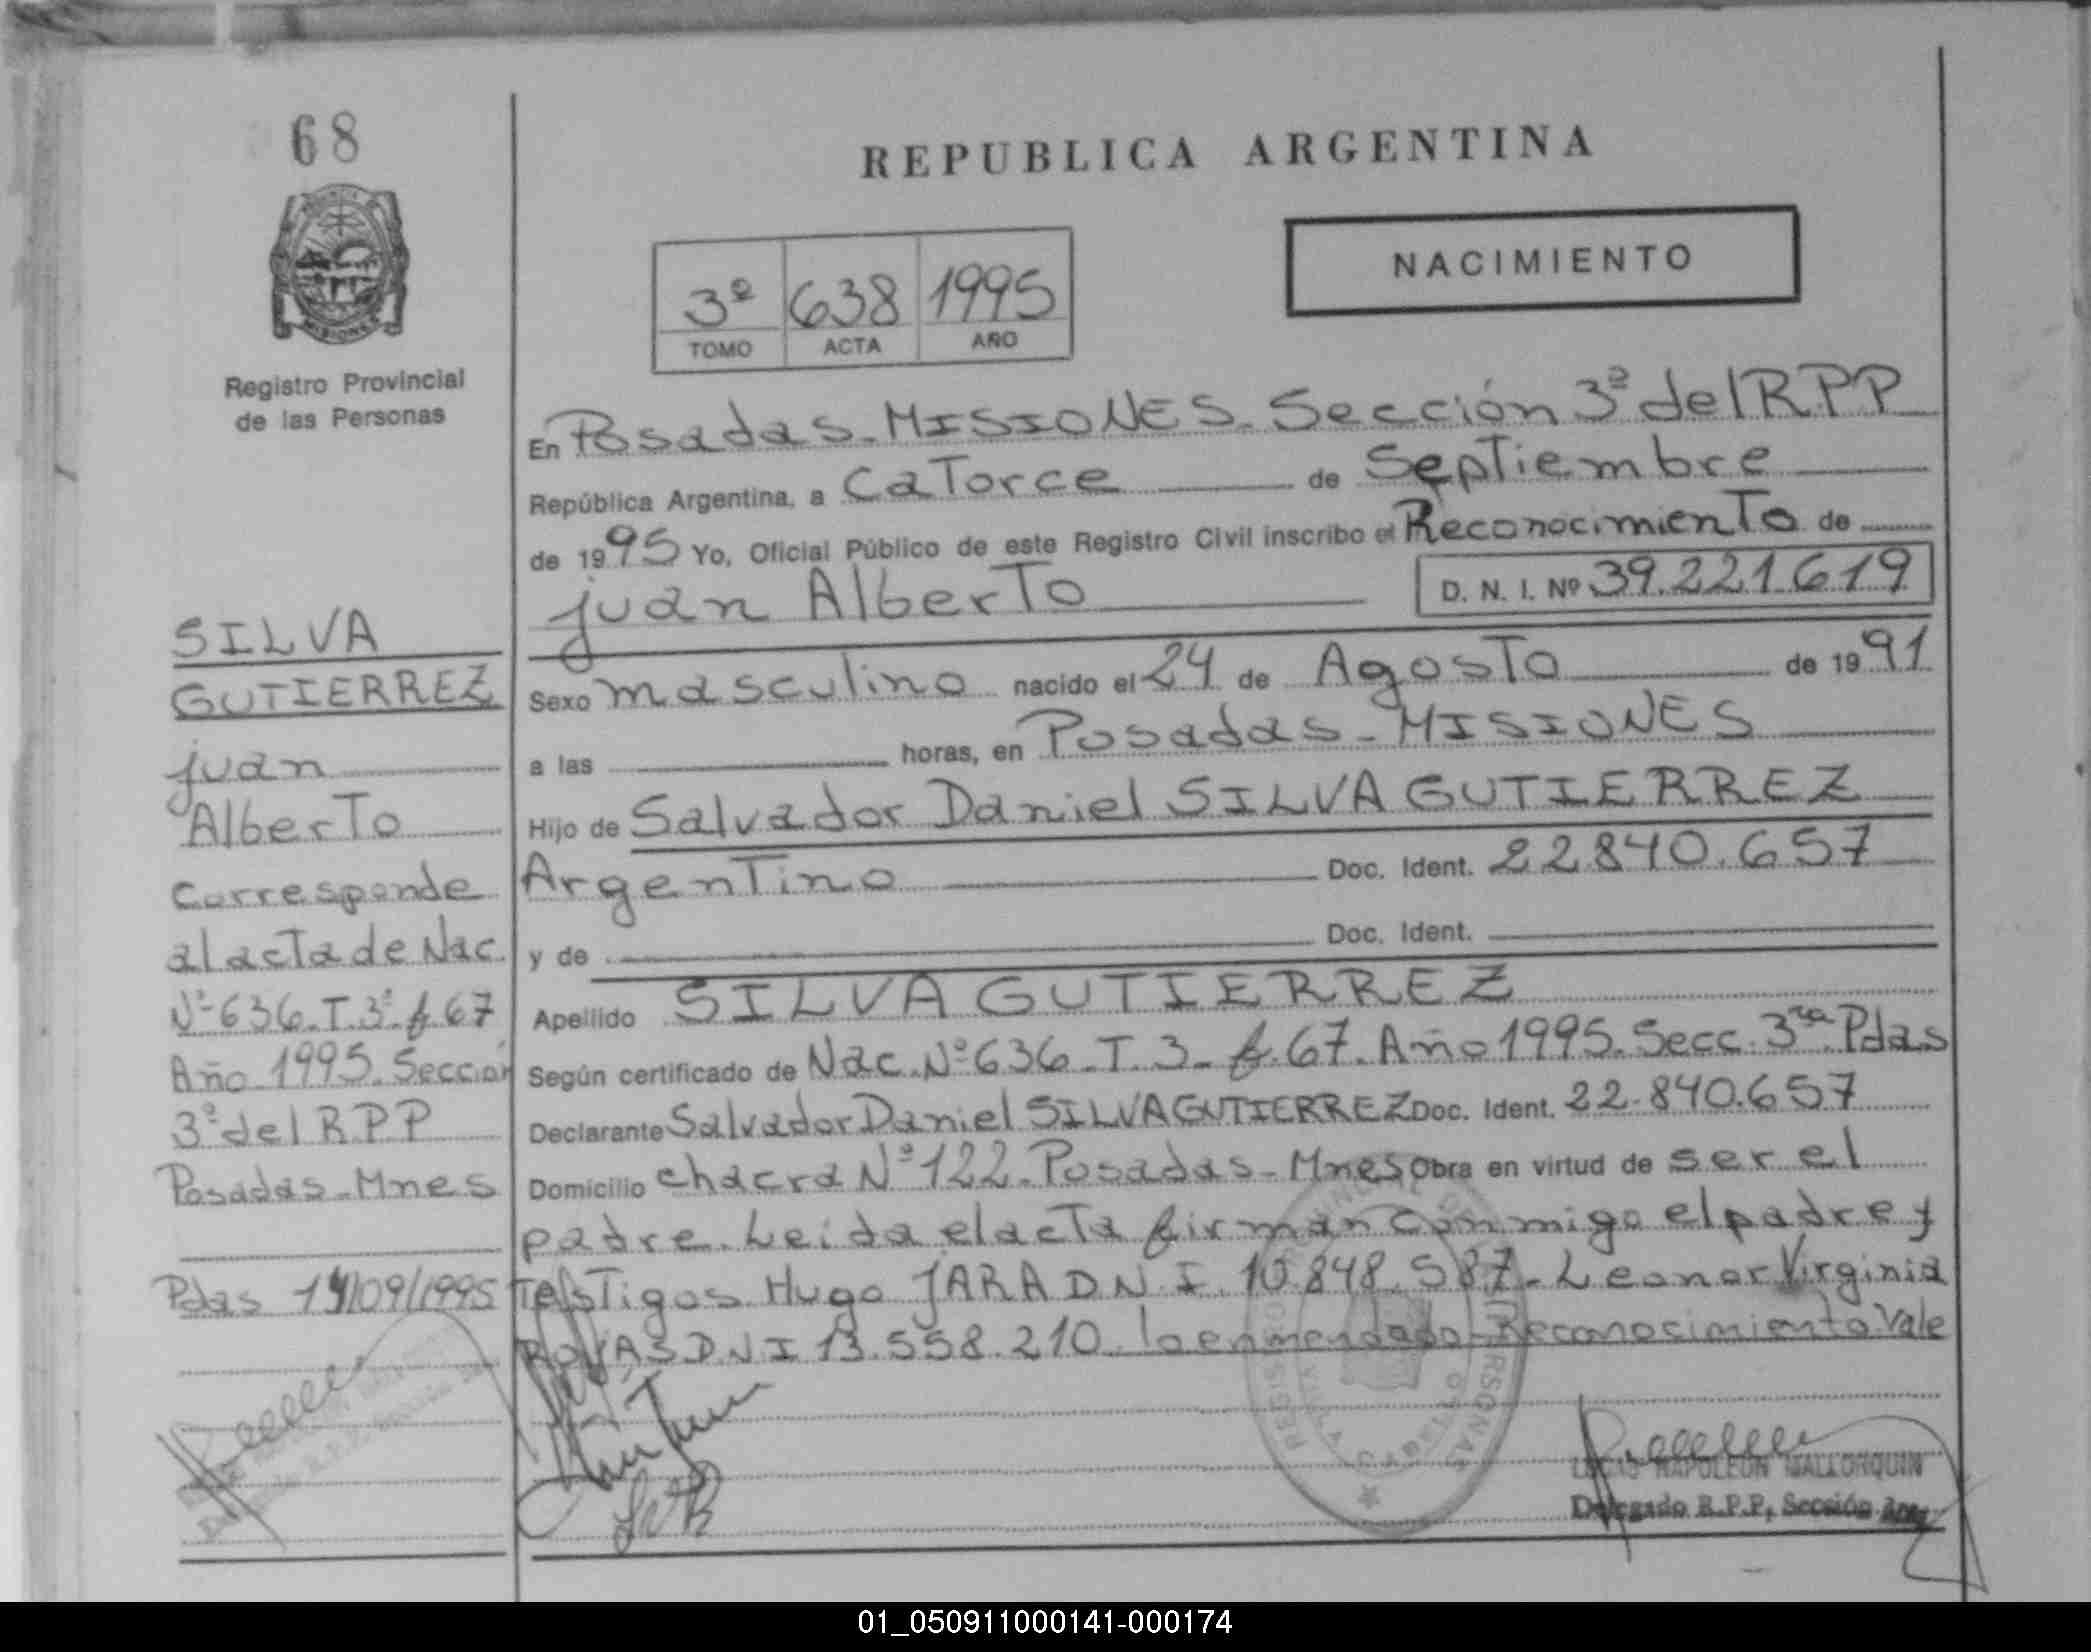 68
REPUBLICA ARGENTINA
NACIMIENTO
3º 638 1995
TOMO ACTA AÑO
Registro Provincial
de las Personas
En Posadas - MISIONES - Sección 3ª del RPP
República Argentina, a Catorce de Septiembre
de 1995 Yo, Oficial Público de este Registro Civil inscribo el Reconocimiento de
juan Alberto D. N. I. Nº 39.221.619
Sexo masculino nacido el 24 de Agosto de 1991
a las horas, en Posadas - MISIONES
Hijo de Salvador Daniel SILVA GUTIERREZ
Argentino Doc. Ident. 22840.657
y de Doc. Ident.
Apellido SILVA GUTIERREZ
Según certificado de Nac. Nº 636 - T. 3 - f. 67. Año 1995. Secc. 3ra Pdas
Declarante Salvador Daniel SILVA GUTIERREZ Doc. Ident. 22.840.657
Domicilio chacra Nº 122 - Posadas - Mnes Obra en virtud de ser el
padre. Leida el acta firman commigo el padre y
Testigos Hugo JARA D N I 10.848.587 - Leonor Virginia
ROJAS D N I 13.558.210. lo enmendado - Reconocimiento Vale
SILVA
GUTIERREZ
juan
Alberto
Corresponde
al acta de Nac.
Nº 636 - T. 3º f. 67
Año 1995. Sección
3ª del RPP
Posadas - Mnes
Pdas 14/09/1995
LUCAS NAPOLEON MALLORQUIN
Delegado R.P.P, Sección 3ra
01_050911000141-000174